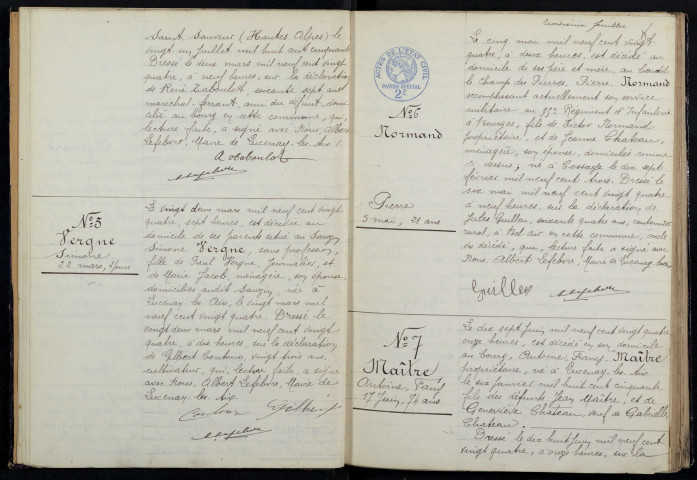 Saint Sauveur (Hautes Alpes) le
vingt un juillet mil huit cent cinquante
Dressé le deux mars mil neuf cent vingt
quatre, à neuf heures, sur la déclaration
de René soixante sept ans
maréchal-ferrant, ami du défunt, domi-
cilié au bourg en cette commune, qui,
lecture faite, a signé avec Nous, Albert
Lefebvre, Maire de Lucenay-les-Aix.
N° 5
Vergne
Simone
22 mars, 2 jours
Le vingt deux mars mil neuf cent vingt
quatre, sept heures, est décédée au
domicile de ses parents situé au
Simone Vergne, sans profession,
fille de Paul Vergne, journalier, et
de Marie Jacob, ménagère, son épouse
domiciliés audit née à
Lucenay-les-Aix, le vingt mars mil
neuf cent vingt quatre. Dressé le
vingt deux mars mil neuf cent vingt
quatre, à dix heures, sur la déclaration
de Gilbert vingt trois ans,
cultivateur, qui, lecture faite, a signé
avec Nous, Albert Lefebvre, Maire de
Lucenay-les-Aix.
Gilbert
troisième feuillet
ACTES DE L'ETAT CIVIL
PAPIER SPECIAL
2F
N° 6
Normand
Pierre
5 mai, 21 ans
Le cinq mai mil neuf cent vingt
quatre, à deux heures, est décédé au
domicile de ses père et mère, au lieudit
le Champ des Pierre Normand
accomplissant actuellement son service
militaire au 95e Régiment d'Infanterie
à Bourges, fils de Victor Normand
propriétaire, et de Jeanne Chateau,
ménagère, son épouse, domiciliés comme
ci-dessus; né à Cossaye le dix sept
février mil neuf cent trois. Dressé le
six mai mil neuf cent vingt quatre
à neuf heures, sur la déclaration de
Jules Guillen, soixante quatre ans, cantonnier
rural, à Bel air en cette commune, oncle
du décédé, qui, lecture faite a signé avec
Nous, Albert Lefebvre, Maire de Lucenay-les-Aix
Guillen
N° 7
Maître
Antoine, Franç
17 Juin, 74 ans
Le dix sept Juin mil neuf cent vingt quatre
onze heures, est décédé en son domicile
au bourg, Antoine, Franç Maître
propriétaire, né à Lucenay-les-Aix
le six janvier mil huit cent cinquante
fils des défunts Jean Maître, et de
Geneviève Chateau, veuf de Gabrielle
Chateau.
Dressé le dix huit Juin mil neuf cent
vingt quatre, à onze heures, sur la